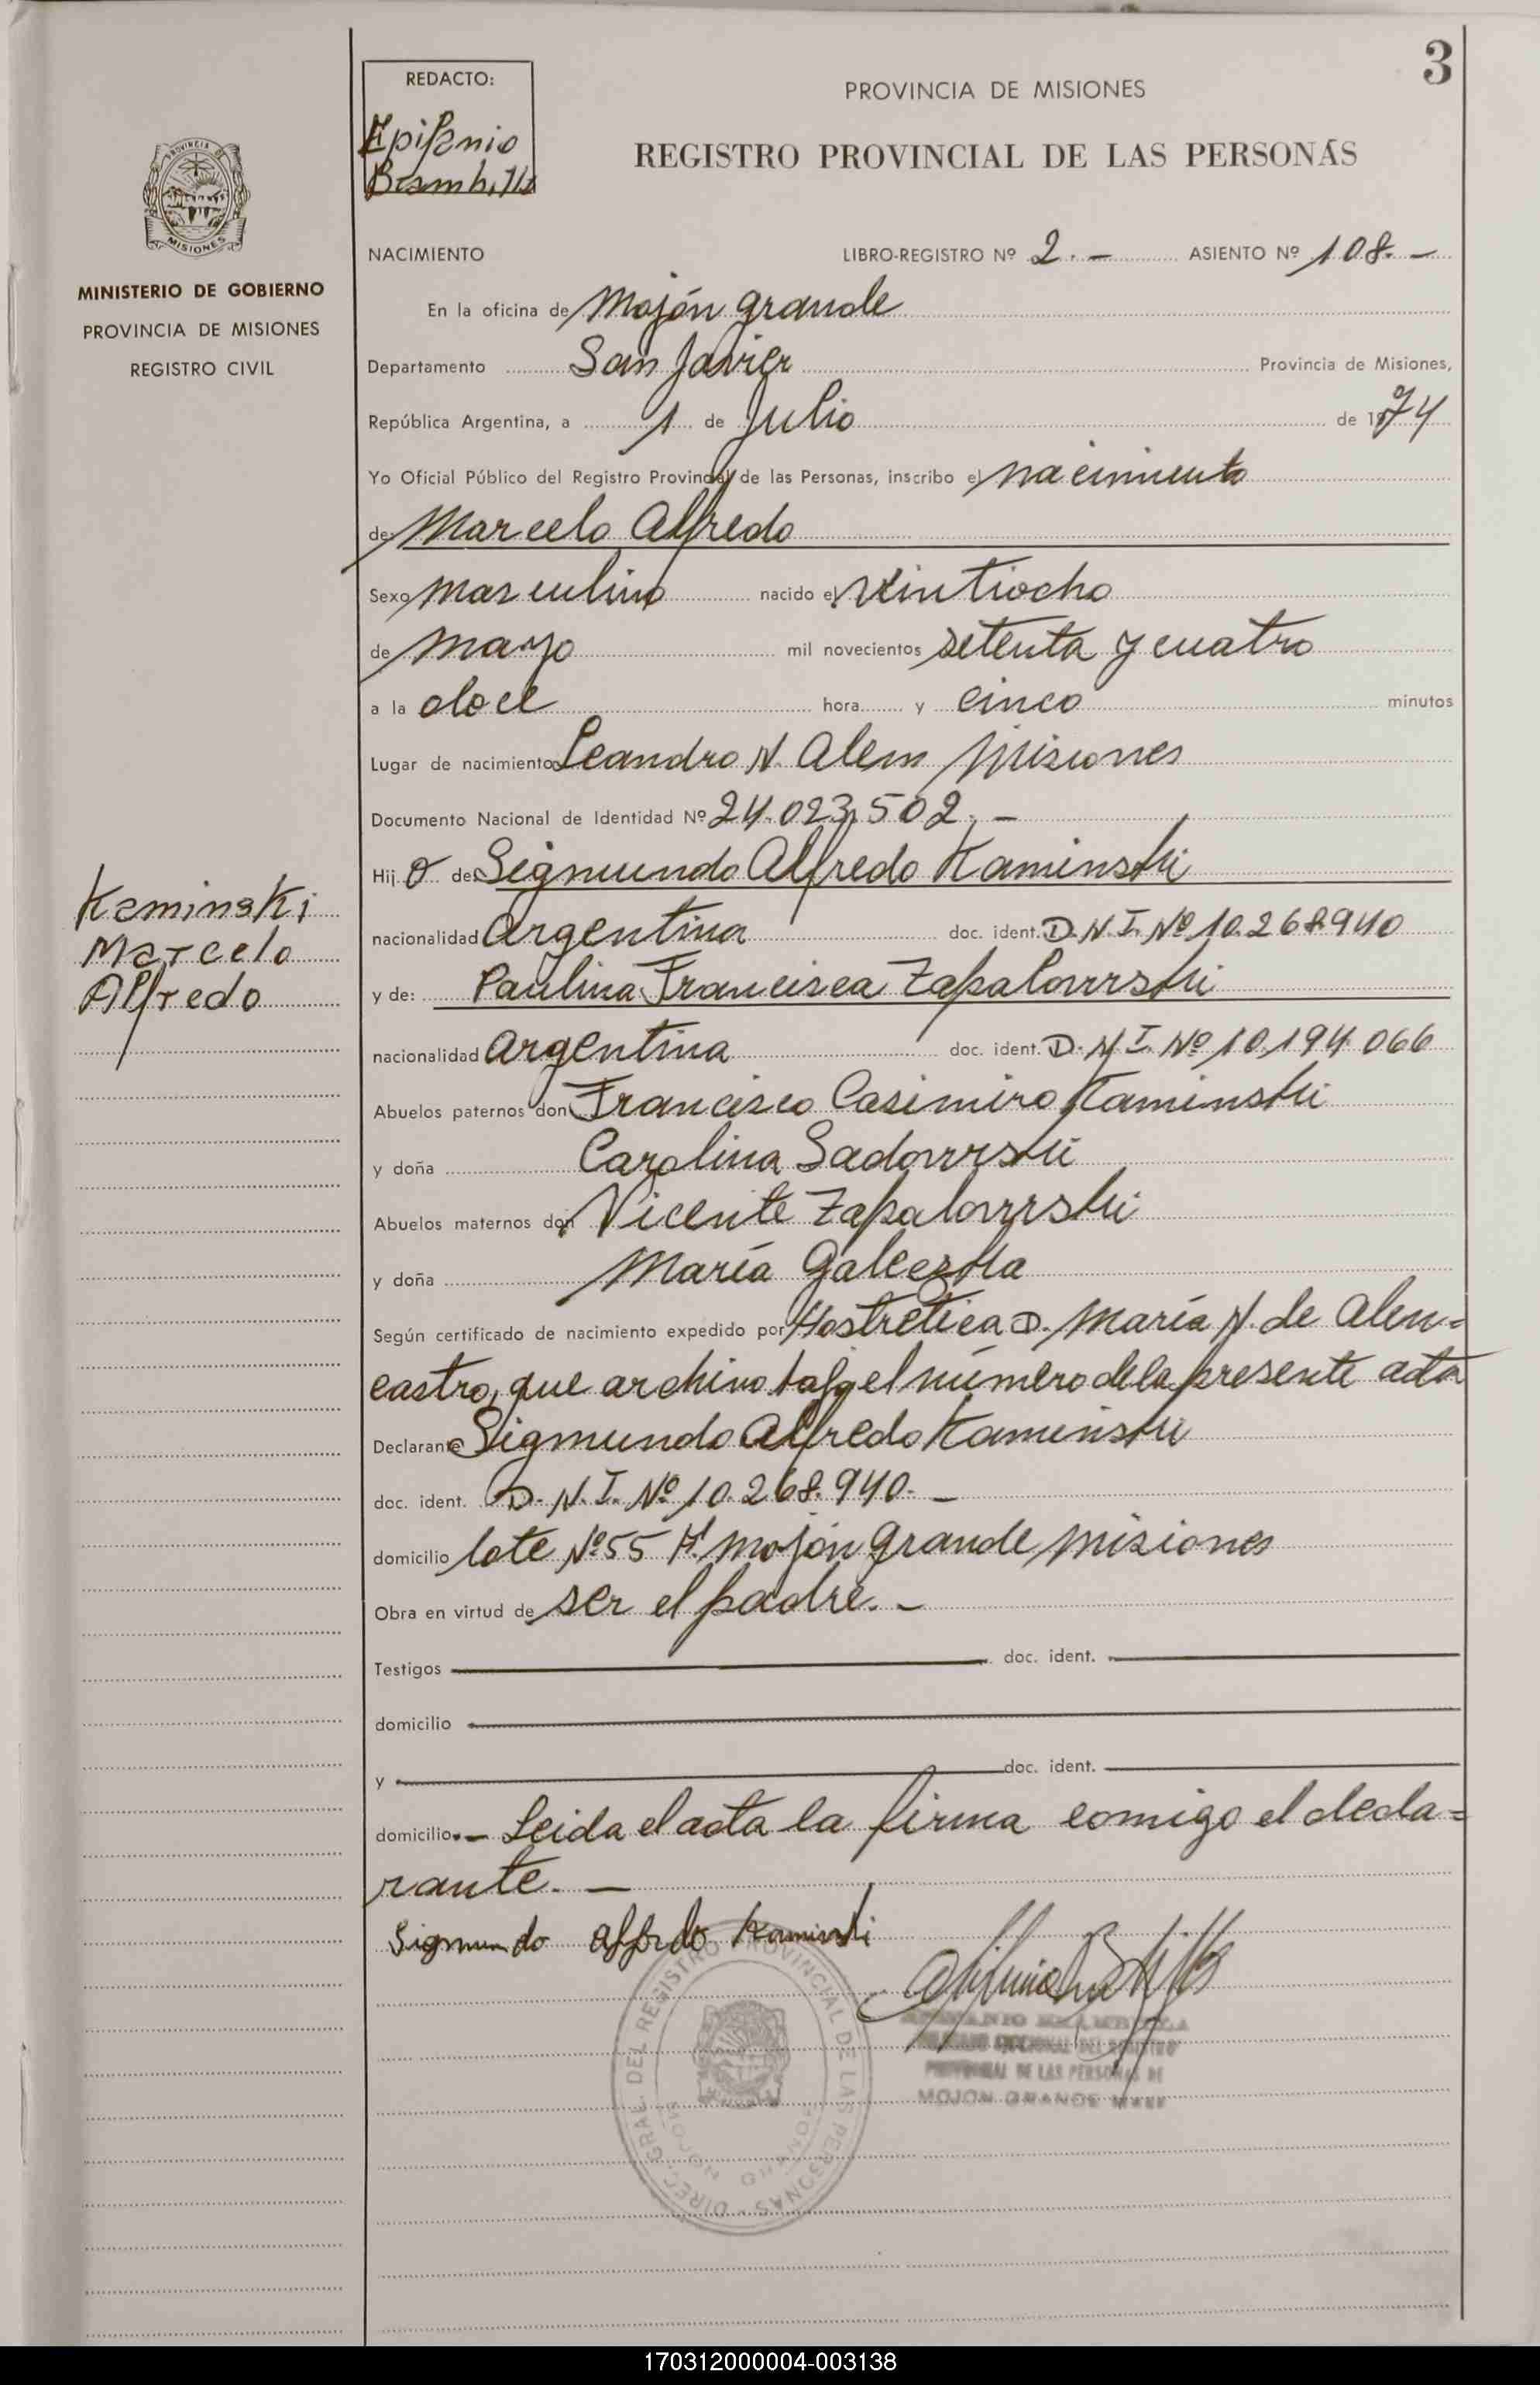 3
REDACTO:
Epifanio
Brambilla
PROVINCIA DE MISIONES
REGISTRO PROVINCIAL DE LAS PERSONAS
PROVINCIA
MISIONES
MINISTERIO DE GOBIERNO
PROVINCIA DE MISIONES
REGISTRO CIVIL
NACIMIENTO LIBRO-REGISTRO Nº 2.- ASIENTO Nº 108.-
En la oficina de Mojón grande
Departamento San Javier Provincia de Misiones,
República Argentina, a 1 de Julio de 1974
Yo Oficial Público del Registro Provincial de las Personas, inscribo el nacimiento
de: Marcelo Alfredo
Sexo masculino nacido el veintiocho
de mayo mil novecientos setenta y cuatro
a la doce hora y cinco minutos
Lugar de nacimiento Leandro N. Alem Misiones
Documento Nacional de Identidad Nº 24.023.502.-
Hij o de Sigmundo Alfredo Kaminski
Kaminski
Marcelo
Alfredo
nacionalidad Argentina doc. ident. D.N.I. Nº 10.268940
y de: Paulina Francisca Zapalowski
nacionalidad Argentina doc. ident. D.N.I. Nº 10.194.066
Abuelos paternos don Francisco Casimiro Kaminski
y doña Carolina Sadowski
Abuelos maternos don Vicente Zapalowski
y doña María
Según certificado de nacimiento expedido por D. María N. de Alen=
castro, que archivo bajo el número de la presente acta
Declarante Sigmundo Alfredo Kaminski
doc. ident. D.N.I. Nº 10.268.940.-
domicilio lote Nº 55 Mojón grande Misiones
Obra en virtud de ser el padre.-
Testigos doc. ident.
domicilio
y doc. ident.
domicilio.- Leida el acta la firma comigo el decla=
rante.-
Sigmundo Alfredo Kaminski
DIREC. GRAL. DEL REGISTRO PROVINCIAL DE LAS PERSONAS
PROVINCIAL DE LAS PERSONAS DE
MOJON GRANDE
170312000004-003138